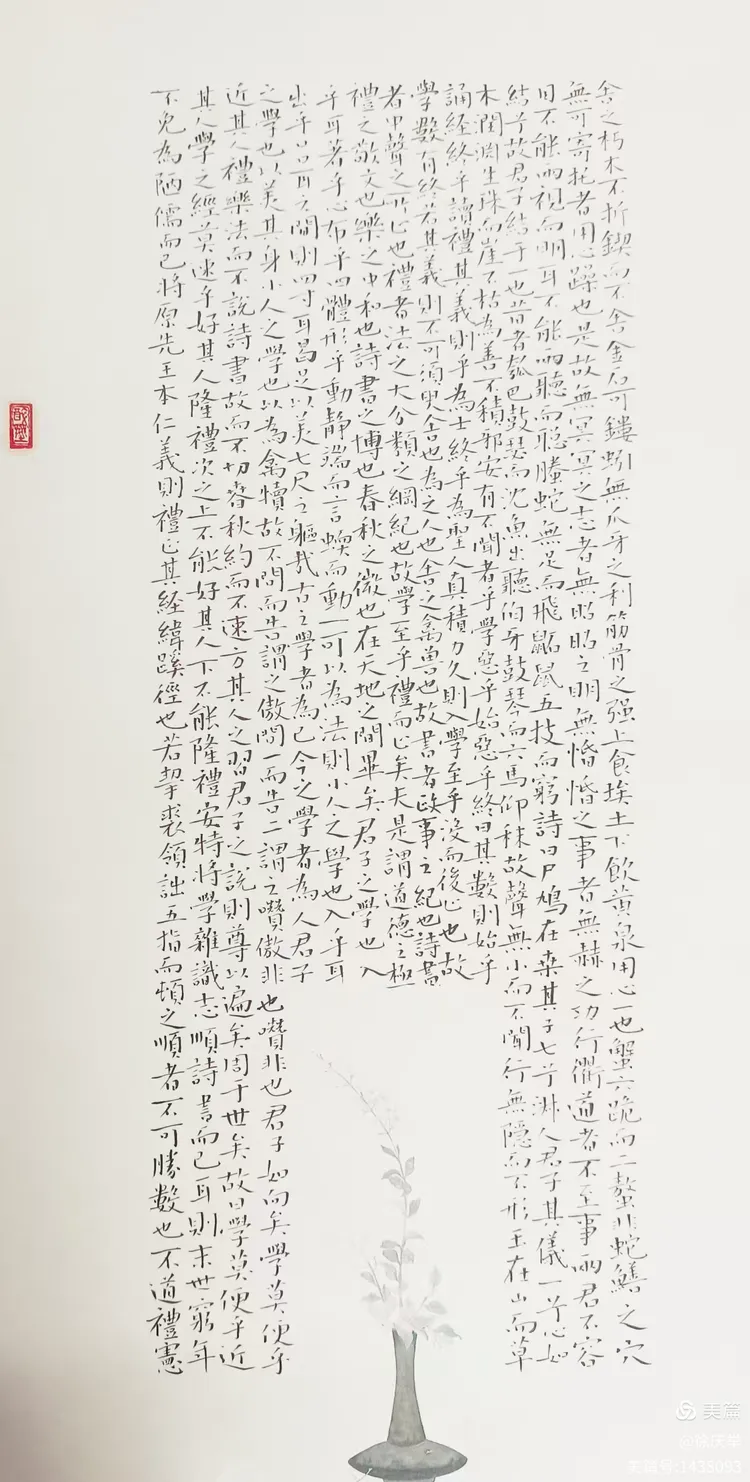 舍之朽木不折鍥而不舍金石可鏤蚓無爪牙之利筋骨之强上食埃土下飲黃泉用心一也蟹六跪而二螯非蛇鱔之穴
無可寄托者用心躁也是故無冥冥之志者無昭昭之明無惛惛之事者無赫之功行衢道者不至事兩君不容
目不能兩視而明耳不能兩聽而聰螣蛇無足而飛鼫鼠五技而窮詩曰尸鳩在桑其子七兮淑人君子其儀一兮心如
結兮故君子結于一也昔者瓠巴鼓瑟而沈魚出聽伯牙鼓琴而六馬仰秣故聲無小而不聞行無隱而不形玉在山而草
木潤淵生珠而崖不枯為善不積邪安有不聞者乎學惡乎始惡乎終曰其數則始乎
誦経終乎讀禮其義則乎為士終乎為聖人真積力久則入學至乎沒而後止也故
學數有終若其義則不可須臾舍也為之人也舍之禽獸也故書者政事之紀也詩書
者中聲之所止也禮者法之大分類之綱紀也故學至乎禮而止矣夫是謂道德之極
禮之敬文也樂之中和也詩書之博也春秋之微也在天地之間畢矣君子之學也入
乎耳著乎心布乎四體形乎動靜端而言蝡而動一可以為法則小人之學也入乎耳
出乎口口耳之間則四寸耳曷足以美七尺之軀哉古之學者為已今之學者為人君子
之學也以美其身小人之學也以為禽犢故不問而告謂之傲問一而告二謂之囋傲非也囋非也君子如向矣學莫便乎
近其人禮樂法而不說詩書故而不切春秋約而不速方其人之習君子之說則尊以遍矣周于世矣故曰學莫便乎近
其人學之經莫速乎好其人隆禮次之上不能好其人下不能隆禮安特將學雜識志順詩書而已耳則末世窮年
不免為陋儒而已將原先王本仁義則禮正其経緯蹊徑也若挈裘領詘五指而頓之順者不可勝數也不道禮憲
美篇
@徐庆举
美篇号:1438093